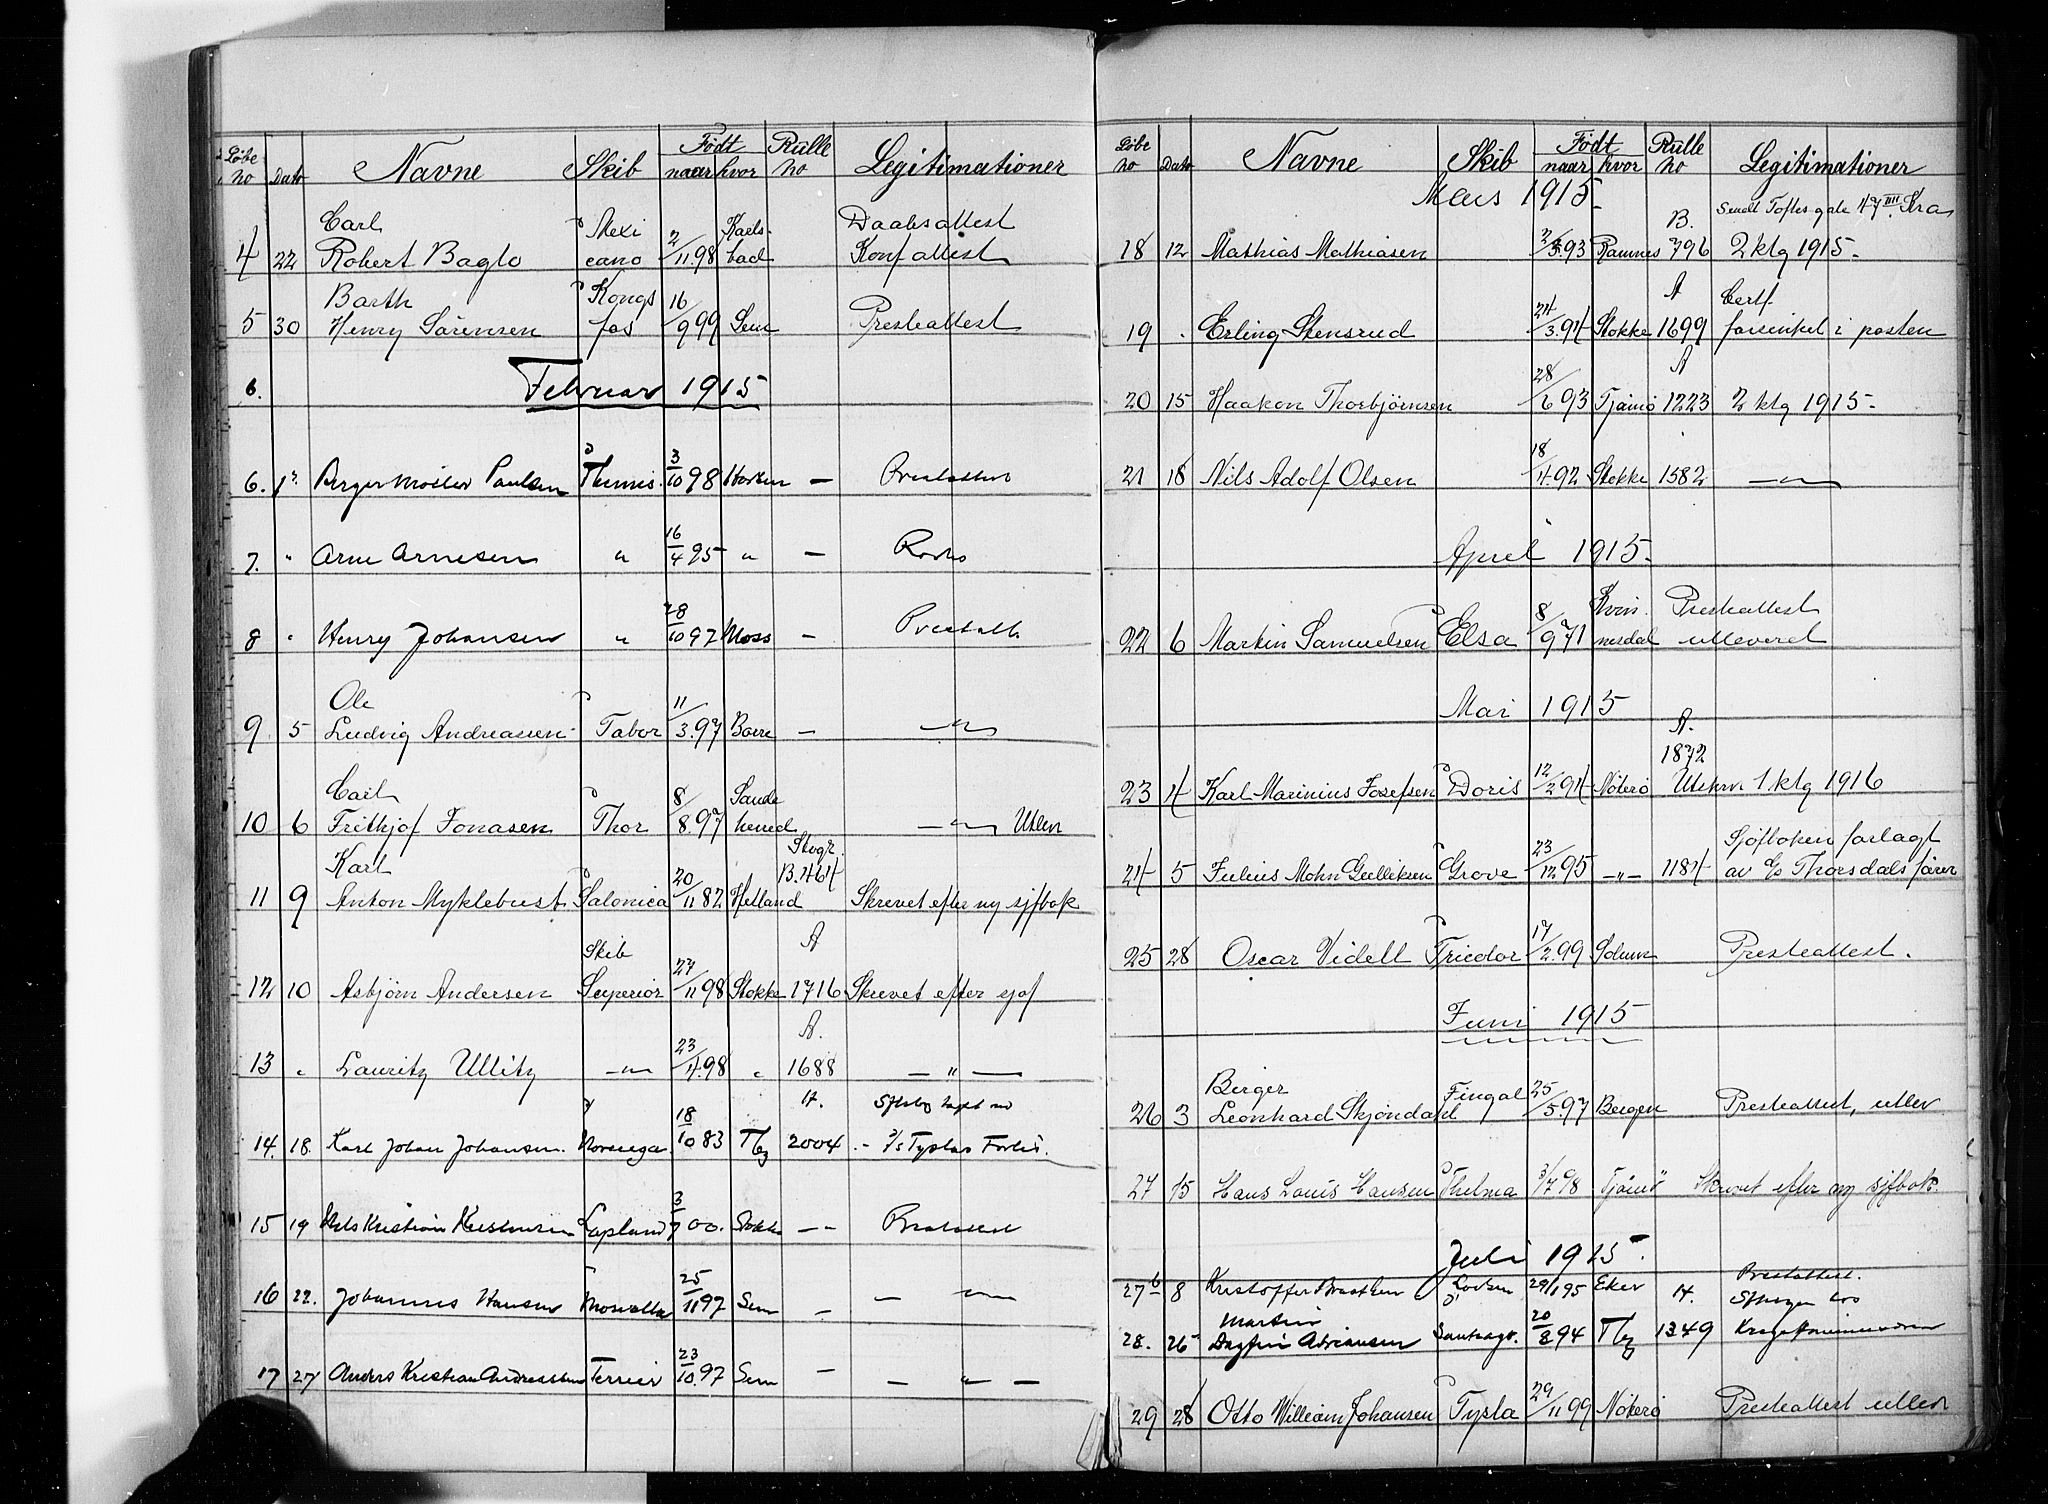 Løbe no Dato Navne Skib Født naar hvor Rulle no Legitimationer
Carl Mexi 2 Karls- Daabsattest
4 22 Robert Baglo cano 11 98 bad Konf attest
Barth Kongs 16
5 30 Henry Sørensen fos 9 99 Sem Presteattest
6. Februar 1915
6. Birger Møller Paulsen Themis. 3/10 98 Horten —
7. " Arne Arnesen " 16/4 95 " —
8 " Henry Johansen " 28/10 97 Moss — Presteatt
Ole 11
9 5 Ludvig Andreassen Tabor 3.97 Borre — —"—
Carl 8 Sande
10 6 Frithjof Jonasen Thor 8.97 herred —"— Utlev
Karl 20 Stvgr. B.464
11 9 Anton Myklebust Salonica 11 82 Hetland Skrevet efter ny sjfbok
Skib 27 A
12 10 Asbjørn Andersen Superior 11 98 Stokke 1716 Skrevet efter sjøf
23 A.
13 " Lauritz Ullitz —"— 4.98 " 1688 — " —
18 A.
14. 18. Karl Johan Johansen. Norvega 10 83 Tbg 2004
15 19 Nils Kristian Kristensen Lapland 3/7 00. Stokke — — Presteattest
16 22. Johannes Hansen 25/11 97 Sem — — "—
17 27 Anders Kristian Andreassen Terrier 23/10.97 Sem — — " —
Løbe no Dato Navne Skib Født naar hvor Rulle no Legitimationer
Mars 1915.
B. Sendt Toftes gate 47 IIII Kra
18 12 Mathias Mathiasen 2/3 93 Ramnes 796 2 ktg 1915.
24 A Certf.
19 . Erling Stensrud 3.94 Stokke 1699 forsinket i posten
28 A
20 15 Haakon Thorbjørnsen 6 93 Tjømø 1223 2 ktg 1915.
18
21 18 Nils Adolf Olsen 4.92 Stokke 1582 —"—
April 1915.
8 Kvin Presteattest
22 6 Martin Samuelsen Elsa 9 71 nesdal utleveret
Mai 1915
A.
1872
23 4 Karl Marinius Josefsen Doris 12/2 94 Nøterø Utskrv 1 ktg 1916
23 Sjøfboken forlagt
24 5 Julius Mohn Gulliksen Grove 12 95 —"— 1184 av C/o Thorsdals fører
17
25 28 Oscar Videll Tricolor 2.99 Solum Presteattest.
Juni 1915
Birger Fingal 25
26 3 Leonhard Skjøndahl 5.97 Bergen Presteattest, utlev
27 15 Hans Louis Hansen Thelma 3/7 98 Tjømø Skrevet efter ny sjfbok.
Juli 1915.
Presteattest.
27b 8 Kristoffer 29/1 95 Eker A.
Martin 20
28. 26 Dagfin Adriansen Santiago. 8 94 Tbg 1349
29
29 28 Otto William Johansen Tysla 11 99 Nøterø Presteattest utlev